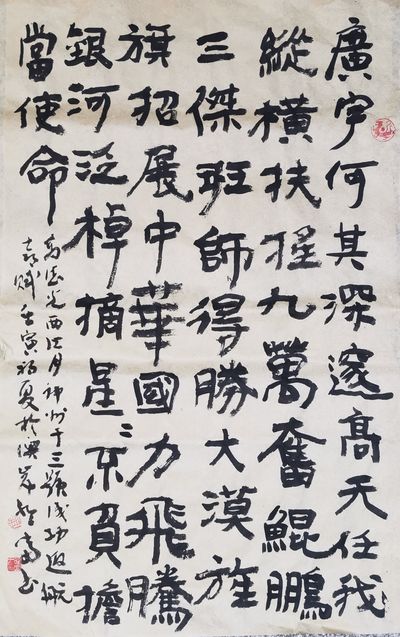 廣宇何其深邃高天任我
縱橫扶搖九萬奮鯤鵬
三傑班師得勝大漠旌
旗招展中華國力飛騰
銀河泛棹摘星〻不負擔
當使命
西江月神州十三號成功返航
喜賦壬寅初夏於書